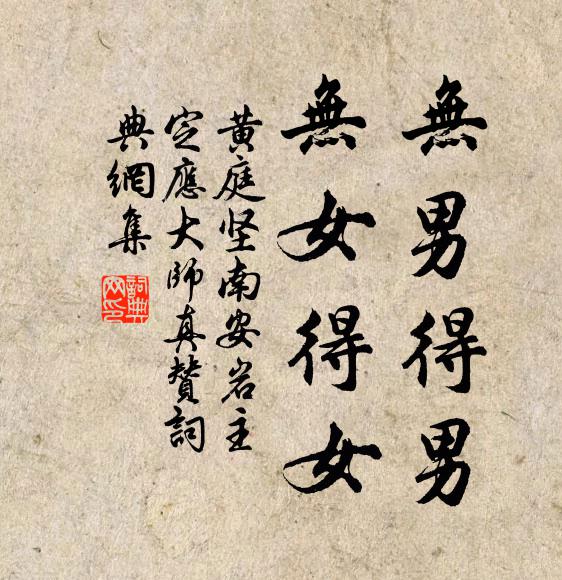 無男得男
無女得女
黄庭坚南安岩主
定應大師真赞詞
典網集
詞典
网印